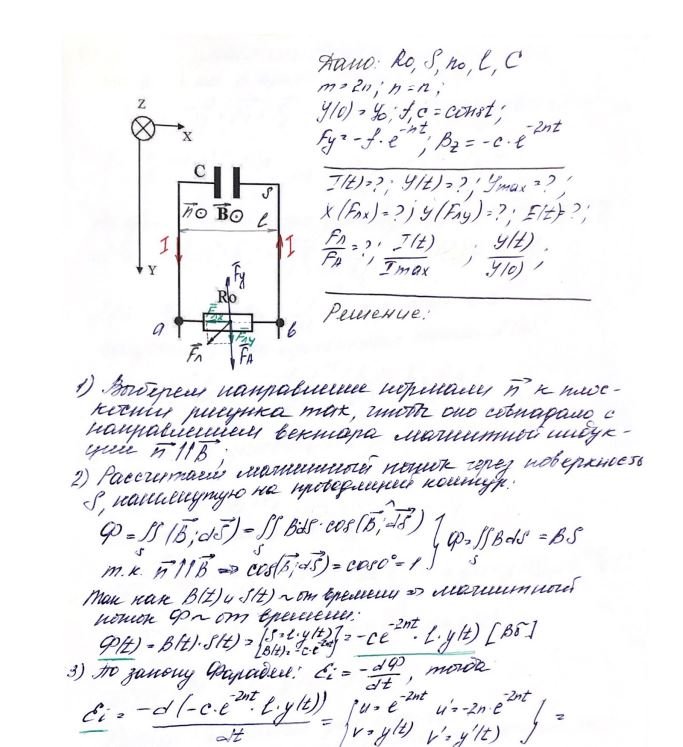 Дано: R₀, S, n₀, l, C
m = 2n; n = n;
y(0) = y₀; f, c = const;
Fy = -f·e^-nt; Bz = -c·e^-2nt
I(t)=?; y(t)=?; ymax=?;
x(Fлx)=?; y(Fлy)=?; E(t)=?;
Fл/FA=?; I(t)/Imax; y(t)/y(0);
Решение:
Z
X
Y
C
S
n⊙ B⊙
l
I
I
Fy
R₀
a
b
Fлx
Fлy
Fл
FA
1) Выберем направление нормали n к плос-
кости рисунка так, чтобы оно совпадало с
направлением вектора магнитной индук-
ции n⇈B;
2) Рассчитаем магнитный поток через поверхность
S, натянутую на проводящий контур:
Ф = ∬(B; dS) = ∬ Bds·cos(B; dS)
S S
т.к. n⇈B ⇒ cos(B; dS) = cos0° = 1
} Ф = ∬ Bds = BS
S
Так как B(t) и S(t) ~ от времени ⇒ магнитный
поток Ф ~ от времени:
Ф(t) = B(t)·S(t) = [S = l·y(t) B(t) = -c·e^-2nt] = -ce^-2nt · l·y(t) [Вб]
3) По закону Фарадея: εi = -dФ/dt, тогда
εi = -d(-c·e^-2nt · l·y(t))/dt = { u = e^-2nt u' = -2n·e^-2nt
v = y(t) v' = y'(t) } =